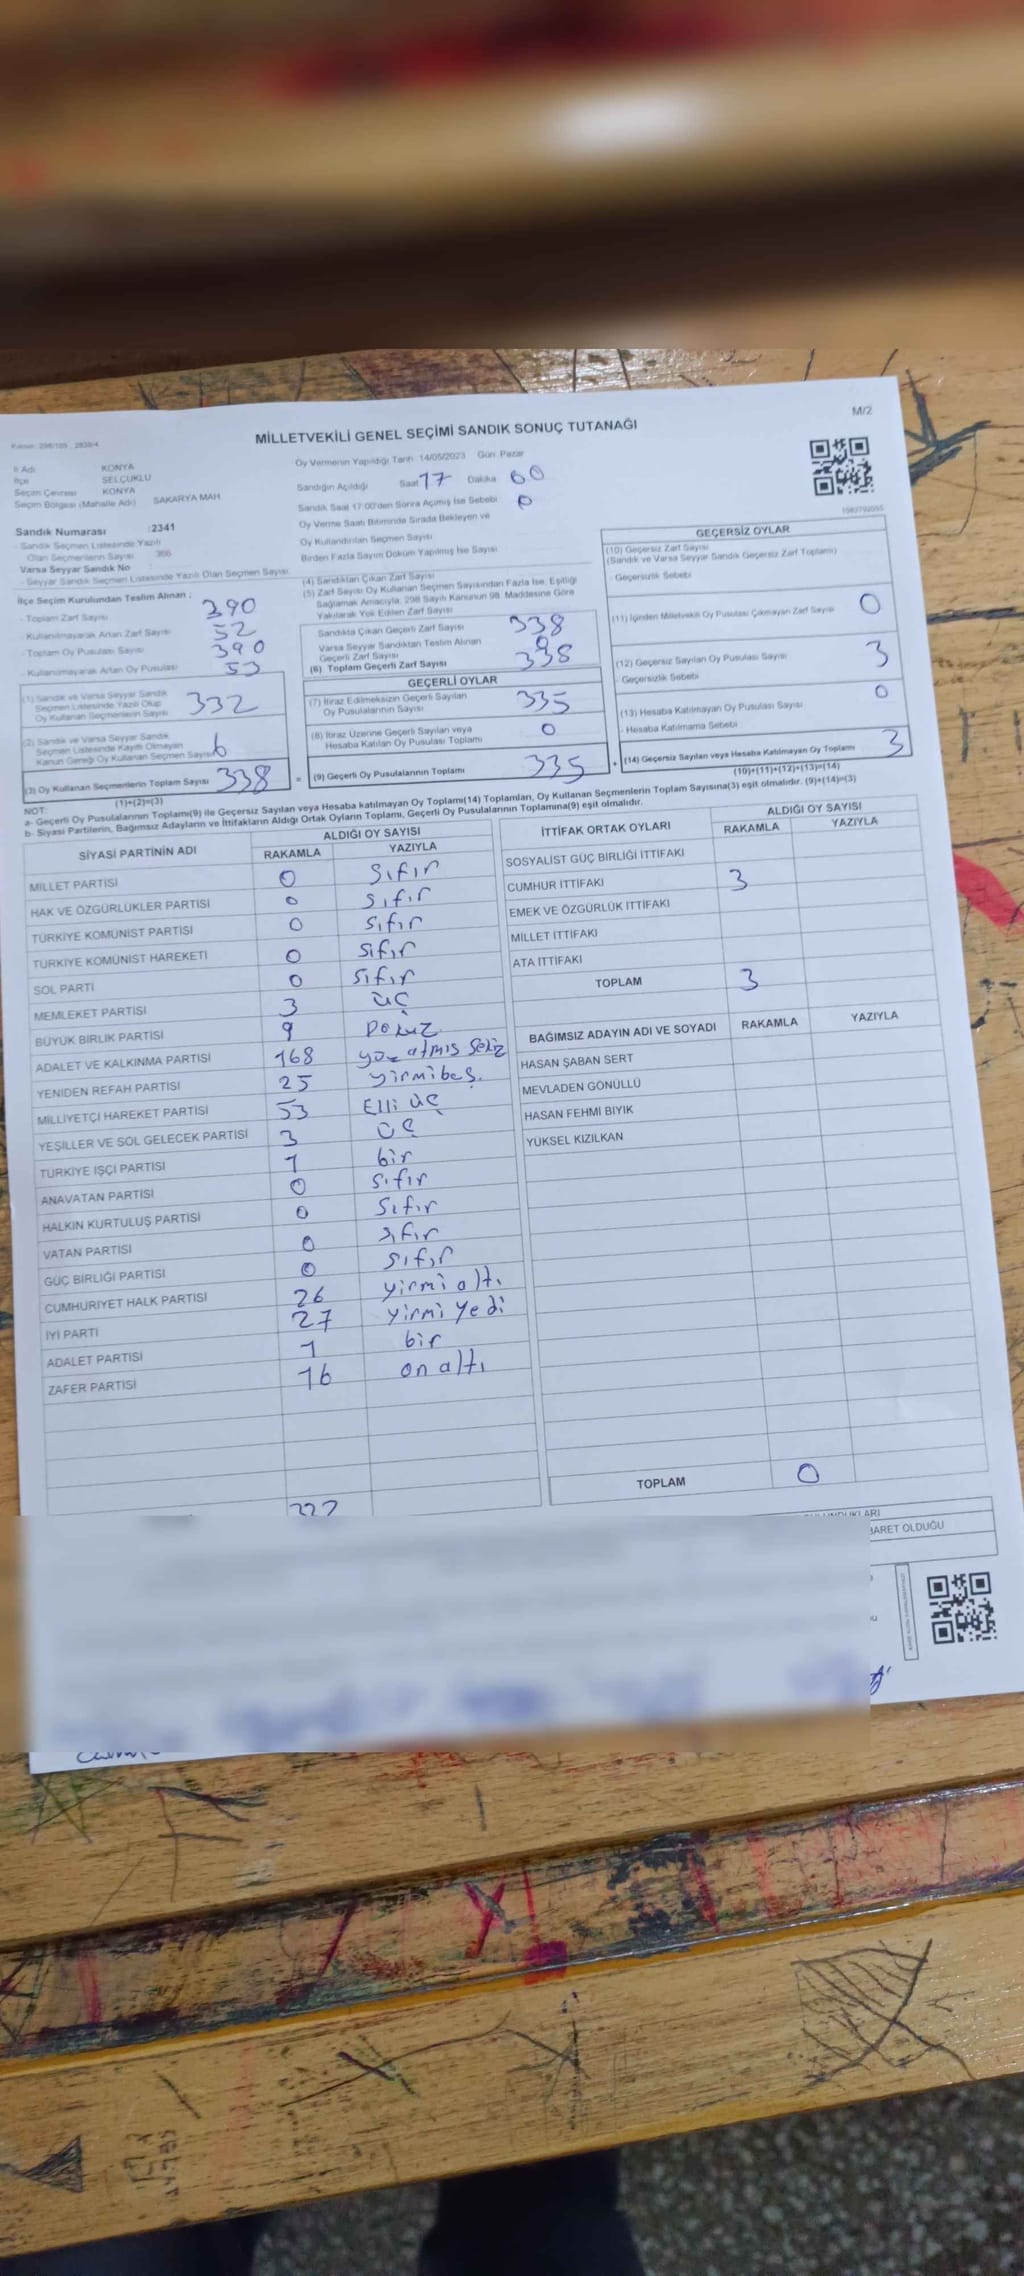 M/2
MİLLETVEKİLİ GENEL SEÇİMİ SANDIK SONUÇ TUTANAĞI
İl Adı KONYA
İlçe SELÇUKLU
Seçim Çevresi KONYA
Seçim Bölgesi (Mahalle Adı) SAKARYA MAH
Sandık Numarası :2341
- Sandık Seçmen Listesinde Yazılı
Olan Seçmenlerin Sayısı 366
Varsa Seyyar Sandık No
- Seyyar Sandık Seçmen Listesinde Yazılı Olan Seçmen Sayısı
Oy Vermenin Yapıldığı Tarih :14/05/2023 Gün: Pazar
Sandığın Açıldığı Saat 17 Dakika 00
Sandık Saat 17:00'den Sonra Açılmış İse Sebebi 0
Oy Verme Saati Bitiminde Sırada Bekleyen ve
Oy Kullandırılan Seçmen Sayısı
Birden Fazla Sayım Döküm Yapılmış İse Sayısı
İlçe Seçim Kurulundan Teslim Alınan ;
- Toplam Zarf Sayısı 390
- Kullanılmayarak Artan Zarf Sayısı 52
- Toplam Oy Pusulası Sayısı 390
- Kullanılmayarak Artan Oy Pusulası 53
(1) Sandık ve Varsa Seyyar Sandık
Seçmen Listesinde Yazılı Olup
Oy Kullanan Seçmenlerin Sayısı 332
(2) Sandık ve Varsa Seyyar Sandık
Seçmen Listesinde Kayıtlı Olmayan
Kanun Gereği Oy Kullanan Seçmen Sayısı 6
(3) Oy Kullanan Seçmenlerin Toplam Sayısı 338
(1)+(2)=(3)
(4) Sandıktan Çıkan Zarf Sayısı
(5) Zarf Sayısı Oy Kullanan Seçmen Sayısından Fazla İse, Eşitliği
Sağlamak Amacıyla, 298 Sayılı Kanunun 98. Maddesine Göre
Yakılarak Yok Edilen Zarf Sayısı
Sandıkta Çıkan Geçerli Zarf Sayısı 338
Varsa Seyyar Sandıktan Teslim Alınan
Geçerli Zarf Sayısı 0
(6) Toplam Geçerli Zarf Sayısı 338
GEÇERLİ OYLAR
(7) İtiraz Edilmeksizin Geçerli Sayılan
Oy Pusulalarının Sayısı 335
(8) İtiraz Üzerine Geçerli Sayılan veya
Hesaba Katılan Oy Pusulası Toplamı 0
= (9) Geçerli Oy Pusulalarının Toplamı 335
GEÇERSİZ OYLAR
(10) Geçersiz Zarf Sayısı
(Sandık ve Varsa Seyyar Sandık Geçersiz Zarf Toplamı)
- Geçersizlik Sebebi
(11) İçinden Milletvekili Oy Pusulası Çıkmayan Zarf Sayısı 0
(12) Geçersiz Sayılan Oy Pusulası Sayısı 3
- Geçersizlik Sebebi
(13) Hesaba Katılmayan Oy Pusulası Sayısı 0
- Hesaba Katılmama Sebebi
+ (14) Geçersiz Sayılan veya Hesaba Katılmayan Oy Toplamı 3
(10)+(11)+(12)+(13)=(14)
NOT:
a- Geçerli Oy Pusulalarının Toplamı(9) ile Geçersiz Sayılan veya Hesaba katılmayan Oy Toplamı(14) Toplamları, Oy Kullanan Seçmenlerin Toplam Sayısına(3) eşit olmalıdır. (9)+(14)=(3)
b- Siyasi Partilerin, Bağımsız Adayların ve İttifakların Aldığı Ortak Oyların Toplamı, Geçerli Oy Pusulalarının Toplamına(9) eşit olmalıdır.
SİYASİ PARTİNİN ADI ALDIĞI OY SAYISI
RAKAMLA YAZIYLA
MİLLET PARTİSİ 0 Sıfır
HAK VE ÖZGÜRLÜKLER PARTİSİ 0 Sıfır
TÜRKİYE KOMÜNİST PARTİSİ 0 Sıfır
TÜRKİYE KOMÜNİST HAREKETİ 0 Sıfır
SOL PARTİ 0 Sıfır
MEMLEKET PARTİSİ 3 üç
BÜYÜK BİRLİK PARTİSİ 9 Dokuz
ADALET VE KALKINMA PARTİSİ 168 yüz atmış Sekiz
YENİDEN REFAH PARTİSİ 25 yirmibeş.
MİLLİYETÇİ HAREKET PARTİSİ 53 Elli üç
YEŞİLLER VE SOL GELECEK PARTİSİ 3 üç
TÜRKİYE İŞÇİ PARTİSİ 1 bir
ANAVATAN PARTİSİ 0 Sıfır
HALKIN KURTULUŞ PARTİSİ 0 Sıfır
VATAN PARTİSİ 0 Sıfır
GÜÇ BİRLİĞİ PARTİSİ 0 Sıfır
CUMHURİYET HALK PARTİSİ 26 yirmi altı
İYİ PARTİ 27 yirmi yedi
ADALET PARTİSİ 1 bir
ZAFER PARTİSİ 16 on altı
İTTİFAK ORTAK OYLARI ALDIĞI OY SAYISI
RAKAMLA YAZIYLA
SOSYALİST GÜÇ BİRLİĞİ İTTİFAKI
CUMHUR İTTİFAKI 3
EMEK VE ÖZGÜRLÜK İTTİFAKI
MİLLET İTTİFAKI
ATA İTTİFAKI
TOPLAM 3
BAĞIMSIZ ADAYIN ADI VE SOYADI RAKAMLA YAZIYLA
HASAN ŞABAN SERT
MEVLADEN GÖNÜLLÜ
HASAN FEHMİ BIYIK
YÜKSEL KIZILKAN
TOPLAM 0